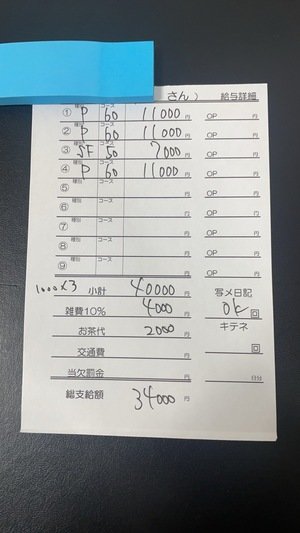 さん） 給与詳細
① 種別 P コース 60 11000円 OP 円
② 種別 P コース 60 11000円 OP 円
③ 種別 SF コース 50 7000円 OP 円
④ 種別 P コース 60 11000円 OP 円
⑤ 種別 コース 円 OP 円
⑥ 種別 コース 円 OP 円
⑦ 種別 コース 円 OP 円
⑧ 種別 コース 円 OP 円
⑨ 種別 コース 円 OP 円
1000×3 小計 40000円 写メ日記
雑費10% 4000円 ok 回
お茶代 2000円 キテネ
交通費 円 回
当欠罰金 円 日分
総支給額 34000円